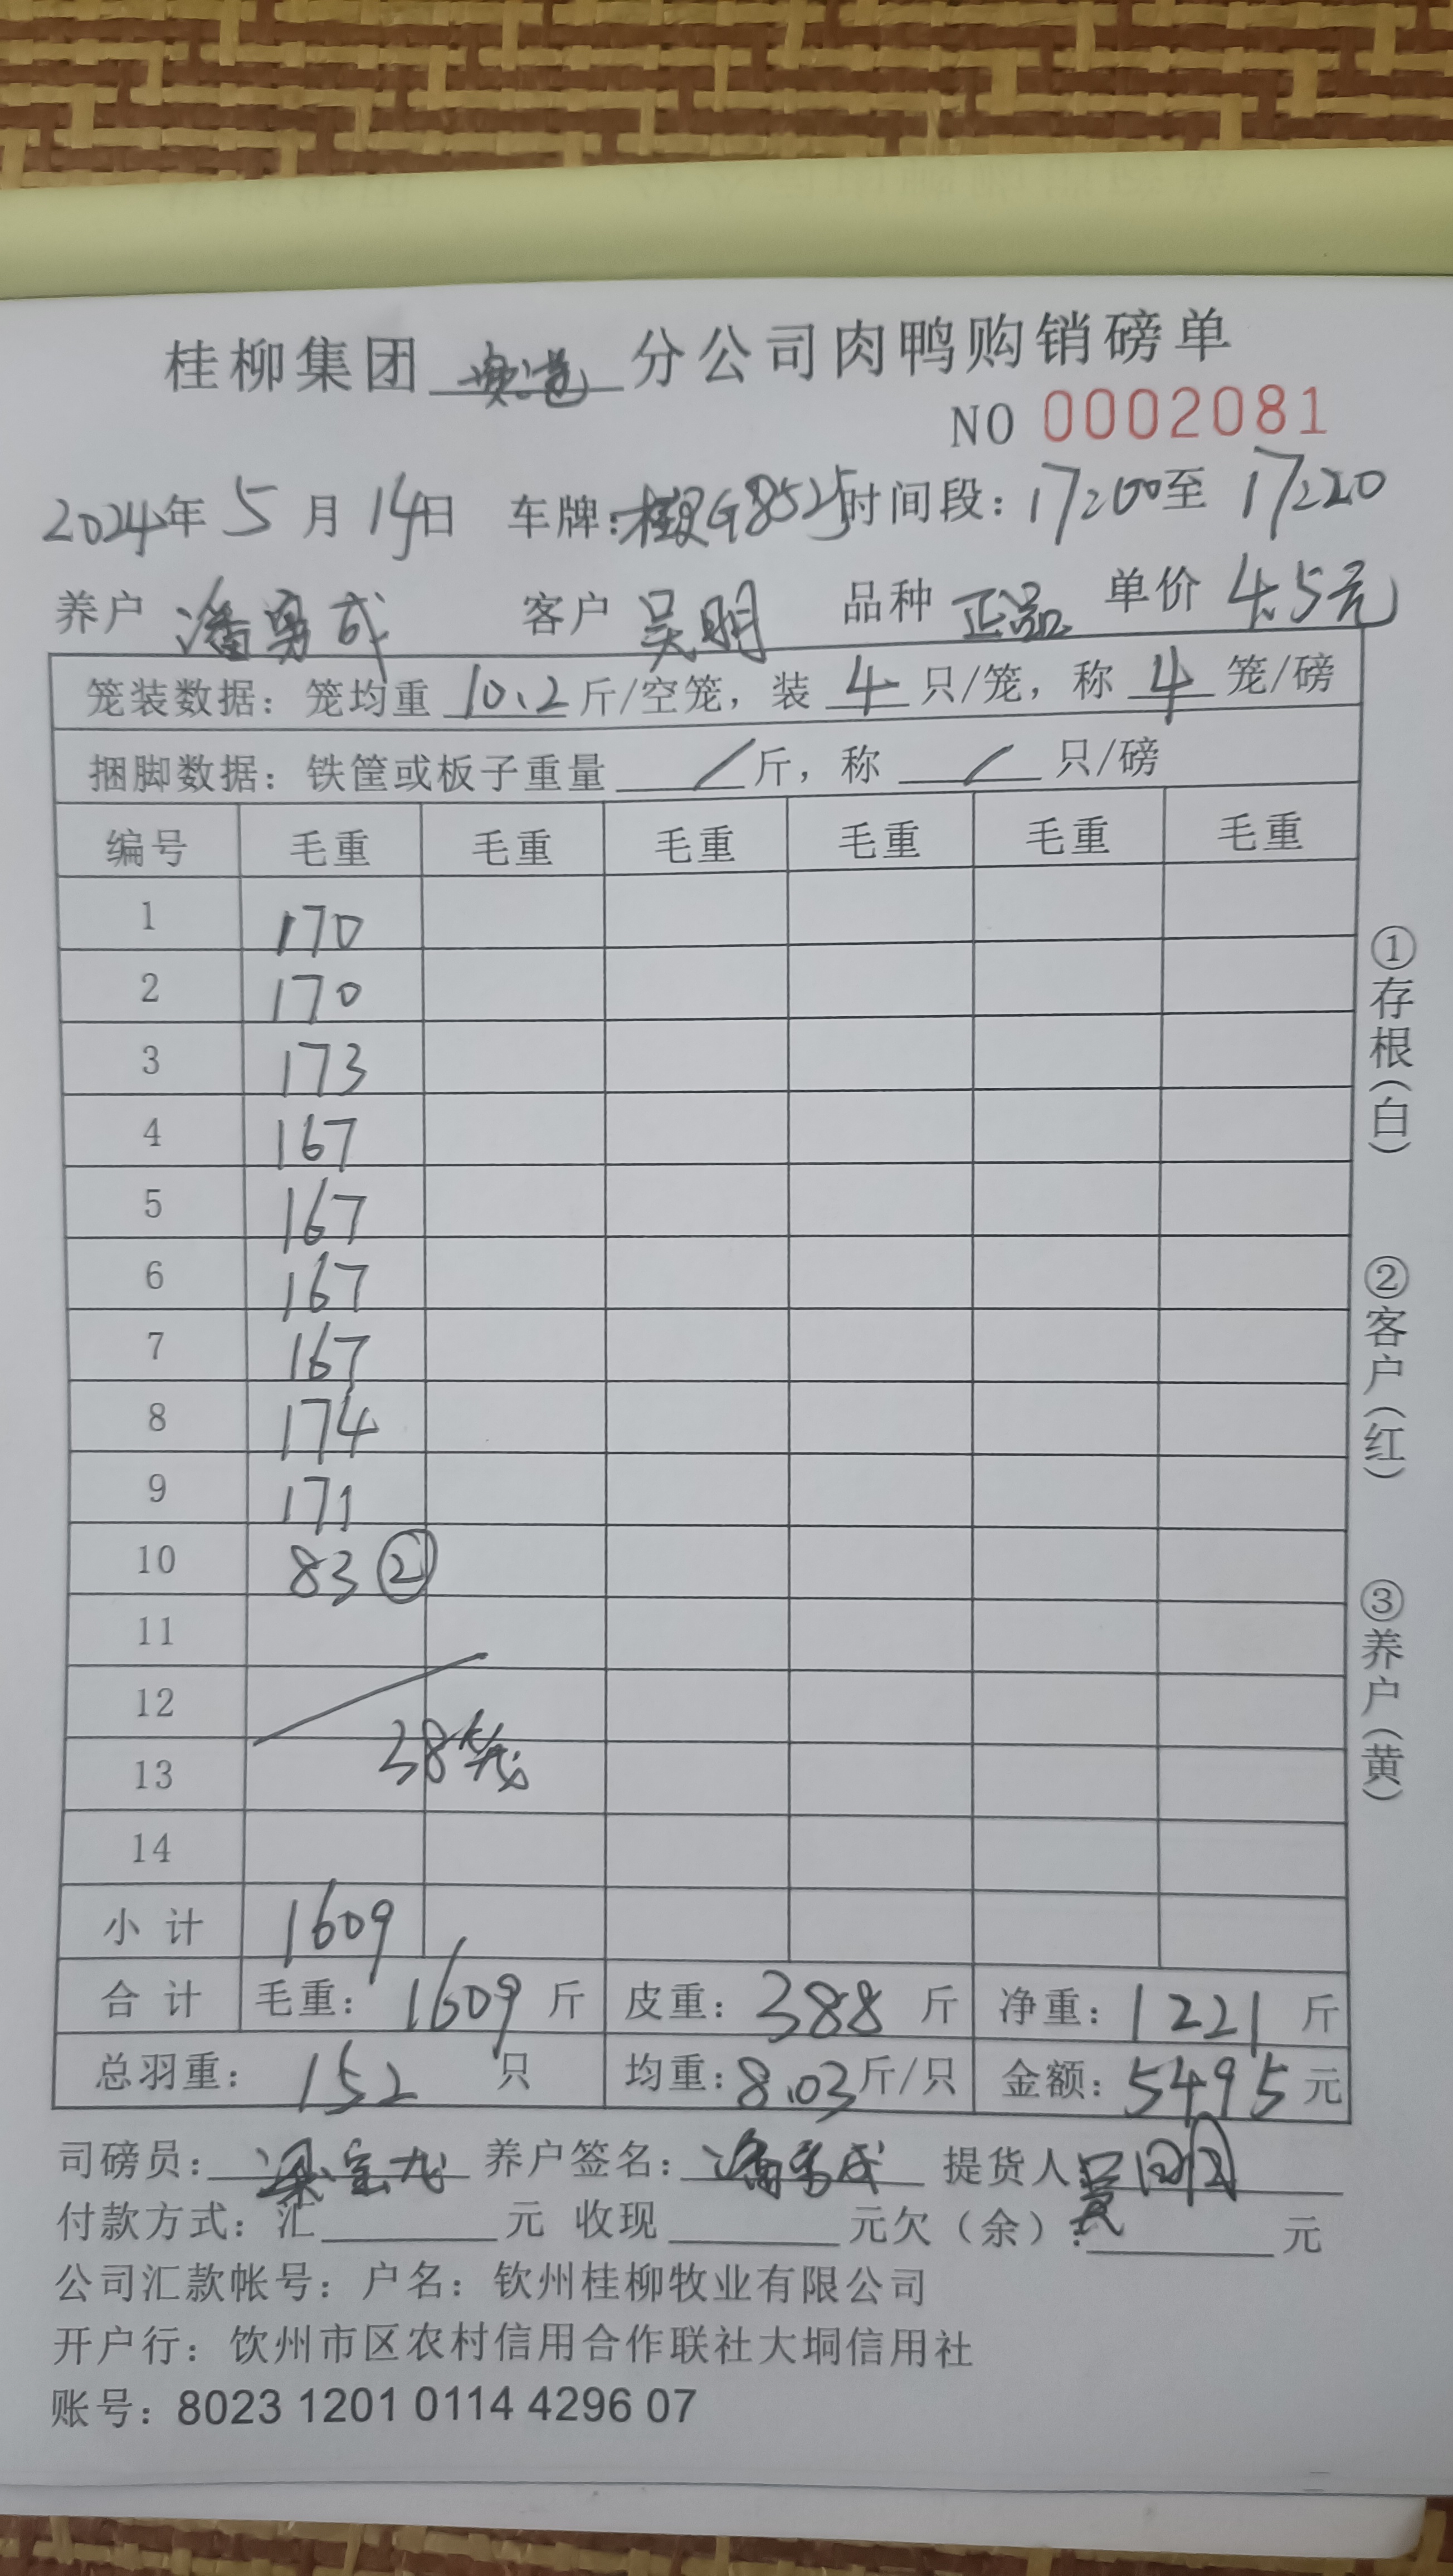 桂柳集团 分公司肉鸭购销磅单
NO 0002081
2024年 5 月 14日 车牌:桂 G8525 时间段: 17:00至 17:20
养户 潘勇成 客户 吴明 品种 正品 单价 4.5元
笼装数据: 笼均重 10.2 斤/空笼, 装 4 只/笼, 称 4 笼/磅
捆脚数据: 铁筐或板子重量 / 斤, 称 / 只/磅
编号 毛重 毛重 毛重 毛重 毛重 毛重
1 170
2 170
3 173
4 167
5 167
6 167
7 167
8 174
9 171
10 83 ②
11
12
13 38笼
14
小 计 1609
合 计 毛重: 1609 斤 皮重: 388 斤 净重: 1221 斤
总羽重: 152 只 均重: 8.03 斤/只 金额: 5495 元
司磅员: 养户签名: 潘勇成 提货人: 吴明
付款方式: 汇 元 收现 元欠(余): 元
公司汇款帐号: 户名: 钦州桂柳牧业有限公司
开户行: 饮州市区农村信用合作联社大垌信用社
账号: 8023 1201 0114 4296 07
①存根(白)
②客户(红)
③养户(黄)